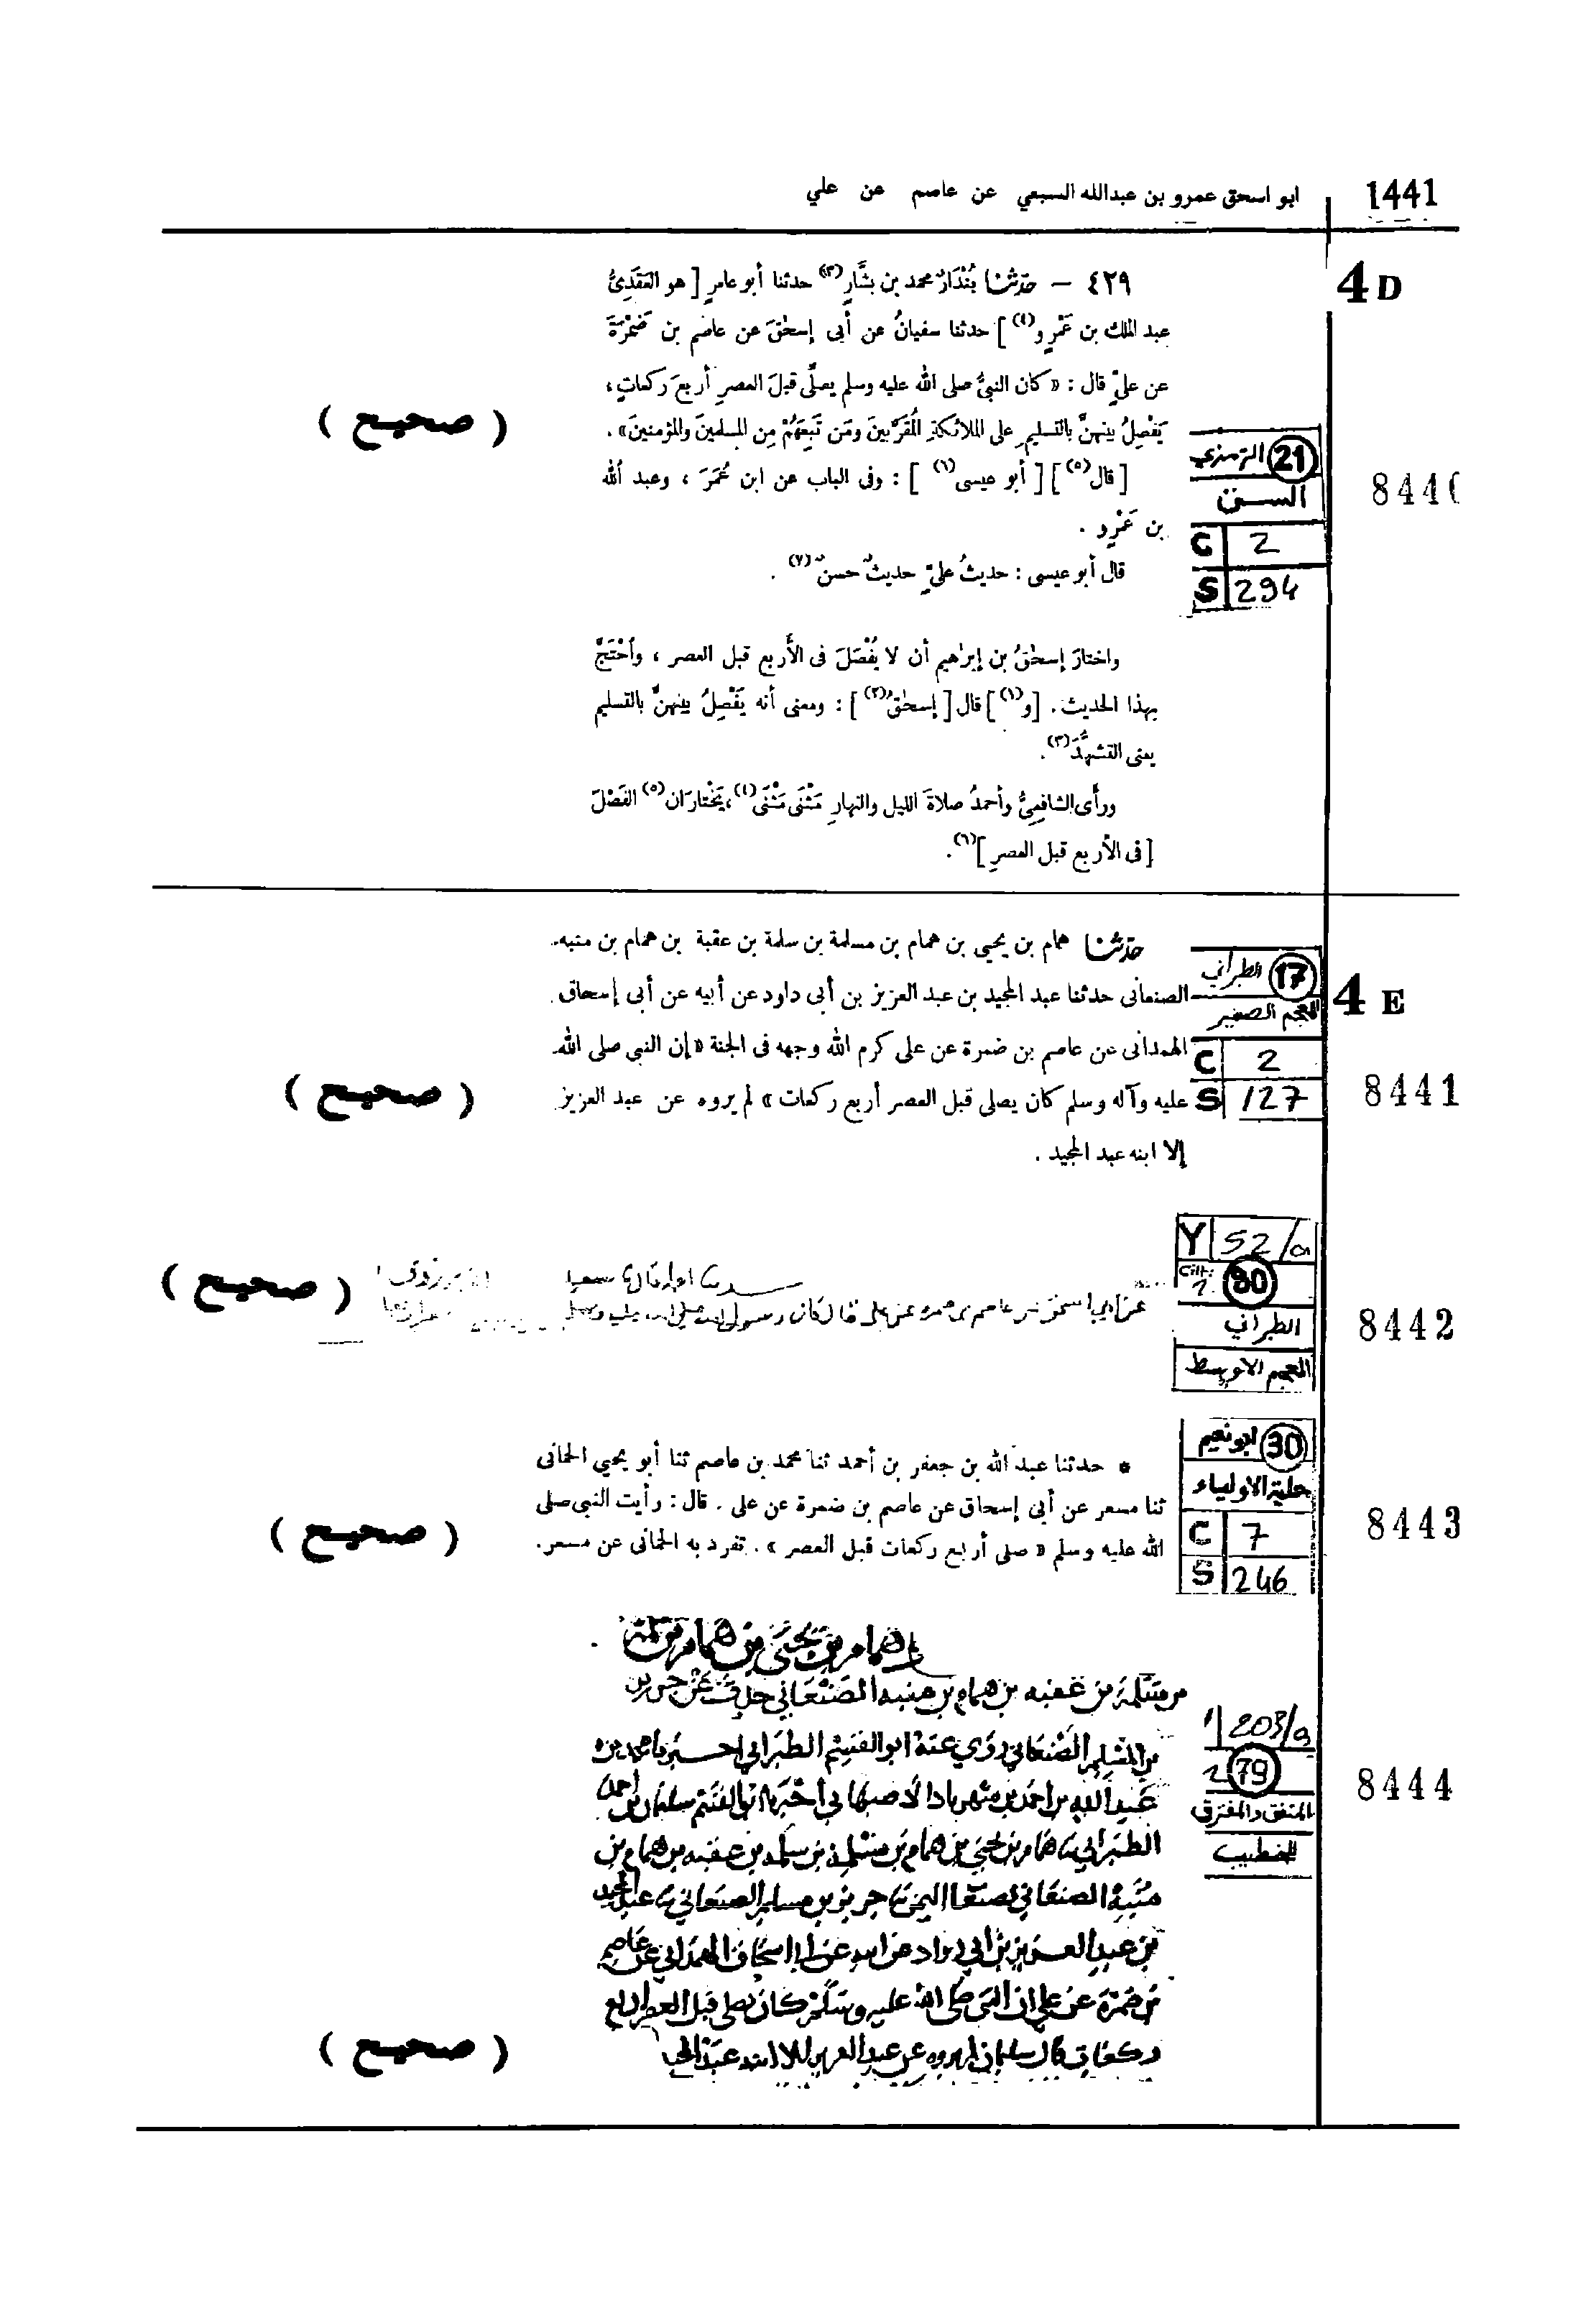 1441
ابو اسحق عمرو بن عبدالله السبعي عن عاصم عن علي
4 D
٤٢٩ – حدثنا بُنْدَارٌ محمد بن بشَّارٍ(٣) حدثنا أبو عامرٍ [ هو العَقَدِىُّ
عبد الملك بن عَمْرٍو(٤) ] حدثنا سفيانُ عن أبى إسحٰقَ عن عاصم بن ضَمْرَةَ
عن علىٍّ قال : « كان النبىُّ صلى الله عليه وسلم يصلِّى قبلَ العصرِ أربعَ ركعاتٍ ،
يَفْصِلُ بينهنَّ بالتسليمِ على الملائكةِ المُقَرَّبينَ ومَن تَبِعَهُمْ مِن المسلمينَ والمؤمنينَ » .
( صحيح )
[ قال(٥) ] [ أبو عيسى(٦) ] : وفى الباب عن ابن عُمَرَ ، وعبد الله
بن عَمْرٍو .
قال أبو عيسى : حديثُ علىٍّ حديثٌ حسنٌ(٧) .
21 الترمذي
السنن
C 2
S 294
8440
واختارَ إسحٰقُ بن إبراهيم أن لا يُفْصَلَ فى الأربع قبل العصر ، وأحْتَجَّ
بهذا الحديث . [ و(١) ] قال [ إسحٰقُ(٢) ] : ومعنى أنه يَفْصِلُ بينهنَّ بالتسليم
يعنى التشهُّدَ(٣) .
ورأى الشافعىُّ وأحمدُ صلاةَ الليل والنهارِ مَثْنَى مَثْنَى(٤) ، يَخْتَارَانِ(٥) الفَصْلَ
[ فى الأربع قبل العصرِ ](٦) .
حدثنا همام بن يحيى بن همام بن مسلمة بن سلمة بن عقبة بن همام بن منبه
الصنعانى حدثنا عبد المجيد بن عبد العزيز بن أبى داود عن أبيه عن أبى إسحاق
الهمدانى عن عاصم بن ضمرة عن على كرم الله وجهه فى الجنة « إن النبي صلى الله
عليه وآله وسلم كان يصلى قبل العصر أربع ركعات » لم يروه عن عبد العزيز
إلا ابنه عبد المجيد .
( صحيح )
17 الطبراني
المعجم الصغير
C 2
S 127
4 E
8441
عن ابي اسحق عن عاصم بن ضمره عن علي قال كان رسول الله صلى الله عليه وسلم
( صحيح )
Y 52/a
Cilt: 1 80
الطبراني
المعجم الاوسط
8442
* حدثنا عبد الله بن جعفر بن أحمد ثنا محمد بن عاصم ثنا أبو يحيى الحمانى
ثنا مسعر عن أبى إسحاق عن عاصم بن ضمرة عن على . قال : رأيت النبى صلى
الله عليه وسلم « صلى أربع ركعات قبل العصر » . تفرد به الحمانى عن مسعر .
( صحيح )
30 ابونعيم
حلية الاولياء
C 7
S 246
8443
همام بن يحيى بن همام بن
مسلمة بن عقبه بن همام بن منبه الصنعاني حدث عن جرير
بن المسلم الصنعاني روي عنه ابو القسم الطبراني محمد بن
عبد الله بن احمد بن شهريار الاصبهاني أخبرنا ابو القسم سليمان بن احمد
الطبراني نا همام بن يحيى بن همام بن مسلمة بن سلمه بن عقبه بن همام بن
منبه الصنعاني بصنعا اليمن نا جرير بن مسلم الصنعاني نا عبد المجيد
بن عبد العزيز بن ابي رواد عن ابيه عن ابي اسحاق الهمداني عن عاصم
بن ضمرة عن علي ان النبي صلى الله عليه وسلم كان يصلي قبل العصر اربع
ركعات قال سليمان لم يروه عن عبد العزيز الا ابنه عبد المجيد
( صحيح )
203/a
79
المتفق والمفترق
للخطيب
8444